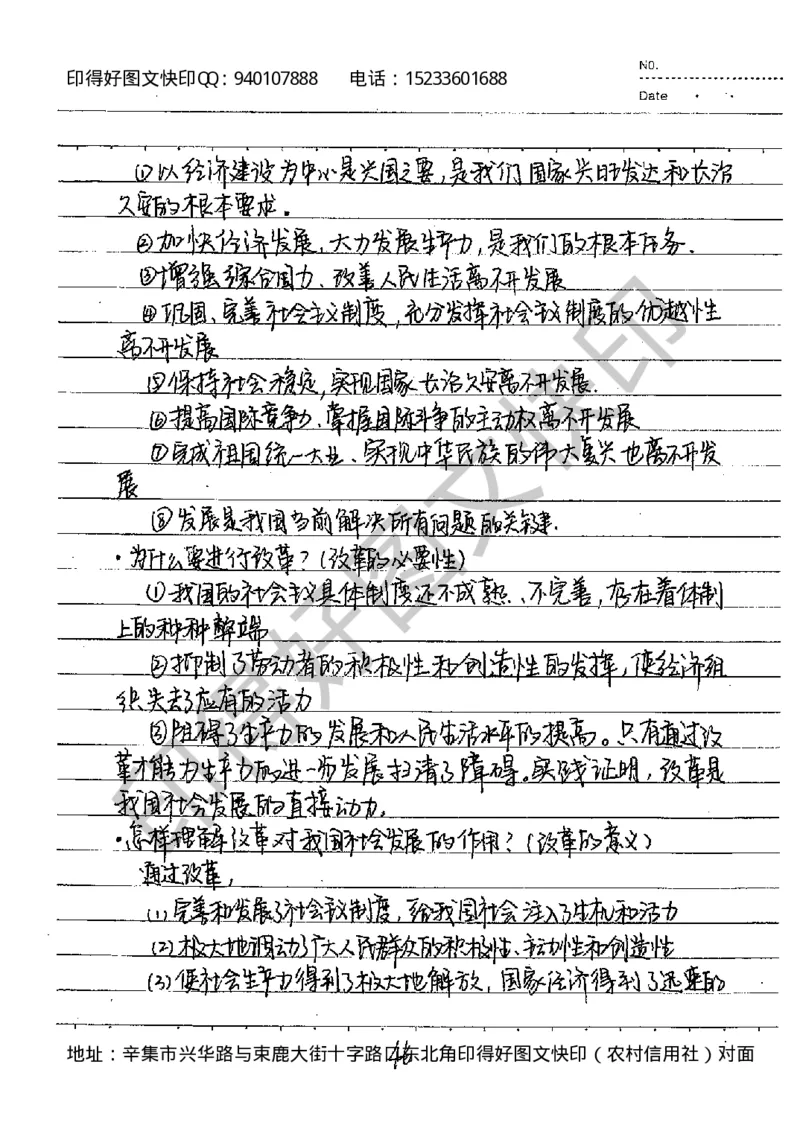 印得好图文快印QQ：940107888 电话：15233601688
NO.
Date
①以经济建设为中心是兴国之要，是我们国家兴旺发达和长治
久安的根本要求。
②加快经济发展、大力发展生产力，是我们的根本任务.
③增强综合国力、改善人民生活离不开发展
④巩固、完善社会主义制度，充分发挥社会主义制度的优越性
离不开发展
⑤保持社会稳定，实现国家长治久安离不开发展.
⑥提高国际竞争力、掌握国际斗争的主动权离不开发展
⑦完成祖国统一大业、实现中华民族的伟大复兴也离不开发
展
⑧发展是我国当前解决所有问题的关键.
·为什么要进行改革？（改革的必要性）
①我国的社会主义具体制度还不成熟、不完善，存在着体制
上的种种弊端
②抑制了劳动者的积极性和创造性的发挥，使经济组
织失去了应有的活力
③阻碍了生产力的发展和人民生活水平的提高。只有通过改
革才能为生产力的进一步发展扫清了障碍。实践证明，改革是
我国社会发展的直接动力。
·怎样理解改革对我国社会发展的作用？（改革的意义）
通过改革，
(1)完善和发展了社会主义制度，给我国社会注入了生机和活力
(2)极大地调动了广大人民群众的积极性、主动性和创造性
(3)使社会生产力得到了极大地解放，国家经济得到了迅速的
地址：辛集市兴华路与束鹿大街十字路口东北角印得好图文快印（农村信用社）对面
46
印得好图文快印